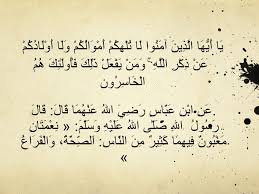 يَا أَيُّهَا الَّذِينَ آمَنُوا لَا تُلْهِكُمْ أَمْوَالُكُمْ وَلَا أَوْلَادُكُمْ
عَنْ ذِكْرِ اللَّهِ ۚ وَمَنْ يَفْعَلْ ذَٰلِكَ فَأُولَٰئِكَ هُمُ
الْخَاسِرُونَ
عَنِ ابْنِ عَبَّاسٍ رَضِيَ اللَّهُ عَنْهُمَا قَالَ: قَالَ
رَسُولُ اللَّهِ صَلَّى اللَّهُ عَلَيْهِ وَسَلَّمَ: « نِعْمَتَانِ
مَغْبُونٌ فِيهِمَا كَثِيرٌ مِنَ النَّاسِ: الصِّحَّةُ، وَالْفَرَاغُ
»